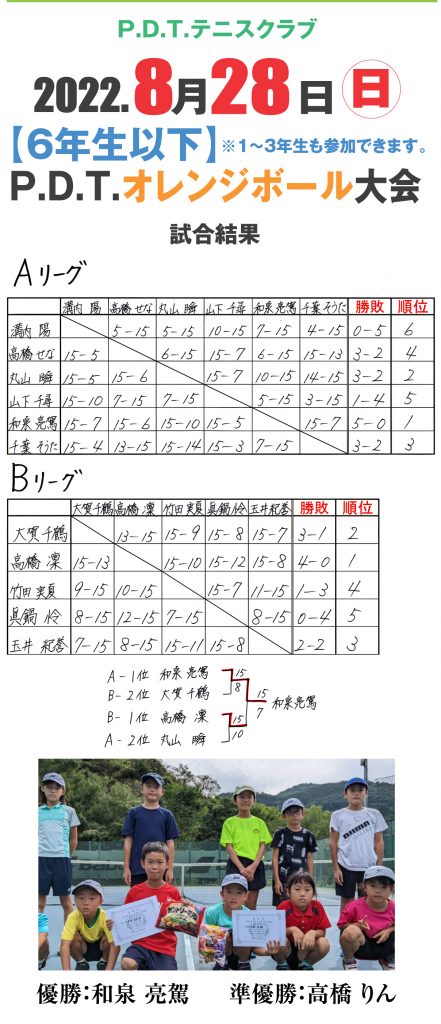 P.D.T.テニスクラブ
2022.8月28日 日
【6年生以下】※1～3年生も参加できます。
P.D.T.オレンジボール大会
試合結果
Aリーグ
溝内 陽 高橋 せな 丸山 瞬 山下 千尋 和泉 亮駕 千葉 そうた 勝敗 順位
溝内 陽 5-15 5-15 10-15 7-15 4-15 0-5 6
高橋 せな 15-5 6-15 15-7 6-15 15-13 3-2 4
丸山 瞬 15-5 15-6 15-7 10-15 14-15 3-2 2
山下 千尋 15-10 7-15 7-15 5-15 3-15 1-4 5
和泉 亮駕 15-7 15-6 15-10 15-5 15-7 5-0 1
千葉 そうた 15-4 13-15 15-14 15-3 7-15 3-2 3
Bリーグ
大賀 千鶴 高橋 凛 竹田 実夏 眞鍋 怜 玉井 紀誉 勝敗 順位
大賀 千鶴 13-15 15-9 15-8 15-7 3-1 2
高橋 凛 15-13 15-10 15-12 15-8 4-0 1
竹田 実夏 9-15 10-15 15-7 11-15 1-3 4
眞鍋 怜 8-15 12-15 7-15 8-15 0-4 5
玉井 紀誉 7-15 8-15 15-11 15-8 2-2 3
A-1位 和泉 亮駕 15
B-2位 大賀 千鶴 8
15
7
和泉亮駕
B-1位 高橋 凛 15
A-2位 丸山 瞬 10
優勝：和泉 亮駕 準優勝：高橋 りん